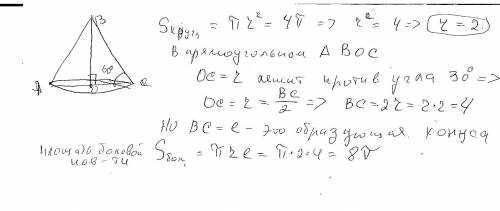 B
A
C
60°
S круга = πr² = 4π => r² = 4 => r = 2.
В прямоугольном Δ BOC
OC = r лежит против угла 30° =>
OC = r = BC/2 => BC = 2r = 2·2 = 4
Но BC = l - это образующая конуса
площадь боковой
пов-ти
S бок = πrl = π·2·4 = 8π